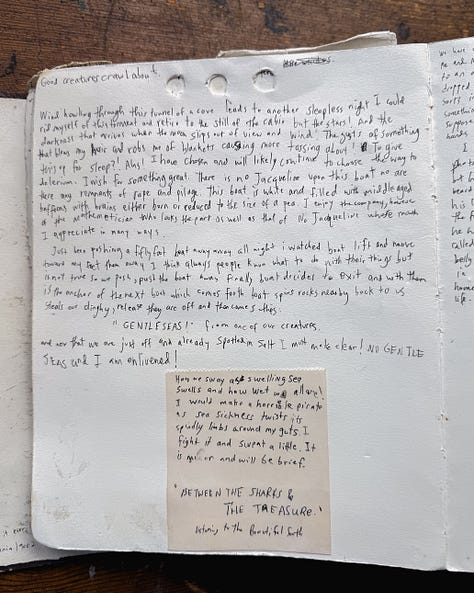 Good creatures crawl about
Wind howling through this tunnel of a cove leads to another sleepless night I could
rid myself of this torment and retire to the still of the cabin but the stars! And the
darkness that revives when the moon slips out of view and wind! The gusts of something
that blows my hair and robs me of blankets causing more tossing about! To give
this up for sleep?! Alas! I have chosen and will likely continue to choose the way to
delerium. I wish for something great. There is no Jacqueline upon this boat no are
there any remnants of rape and pilage. This boat is white and filled with middle aged
buffoons with brains either born or reduced to the size of a pea. I enjoy the company, however
of the mathematician who looks the part as well as that of No Jacqueline where much
I appreciate in many ways.
Just been pushing a fiftyfoot boat away away all night i watched boat lift and move
toward my feet then away I think always people know what to do with their things but
is not true so we push, push the boat away finally boat decides to exit and with them
is the anchor of the next boat which comes forth boat spins rocks nearby back to us
steals our dinghy, release they are off and then comes the:
"GENTLE SEAS!" from one of our creatures.
and now that we are just off and already Spotted in Salt I must make clear! NO GENTLE
SEAS and I am enlivened!
How we sway as swelling sea
swells and how wet we all are!
I would make a horrible pirate
as sea sickness twists its
spudly limbs around my guts. I
fight it and sweat a little. It
is minor and will be brief.
"BETWEEN THE SHARKS &
THE TREASURE."
listening to the Beautiful South
we have
me and
to an
dropped
sorry
something
support
hands
but
near
his
the
he
called
belly
in
home
life